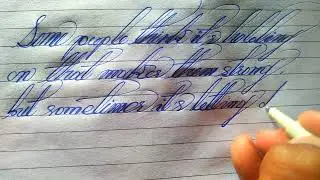 Some people thinks it's holding
on that makes them strong.
but sometimes it's letting